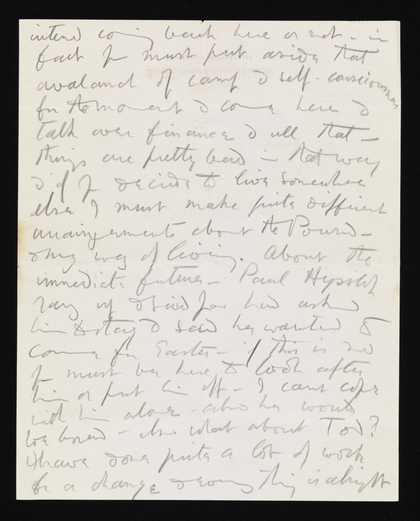 intend coming back here or not – in
fact you must put aside that
avalanch of camp & self-consciousness
for the moment & come here &
talk over finance & all that –
things are pretty bad in that way
& if you decide to live somewhere
else I must make quite different
arrangements about the Pound –
& my way of living. About the
immediate future – Paul
rang up & said you had asked
him to stay & said he wanted to
come for Easter – if this is so
you must be here to look after
him or put him off – I can't cope
with him alone – also he would
be bored – also what about Tod?
I have done quite a lot of work
for a change & everything is alright